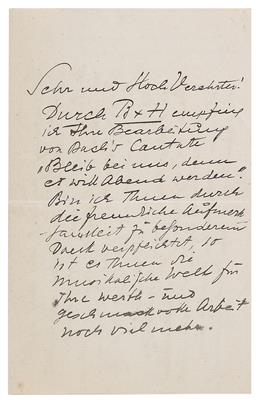 Sehr und Hoch Verehrter!
Durch B + H empfing
ich Ihre Bearbeitung
von Bach's Cantate
„Bleib bei uns, denn
es will Abend werden."
Bin ich Ihnen durch
die freundliche Aufmerk-
samkeit zu besonderem
Dank verpflichtet, so
ist es Ihnen die
musikalische Welt für
Ihre werth- und
geschmackvolle Arbeit
noch viel mehr.